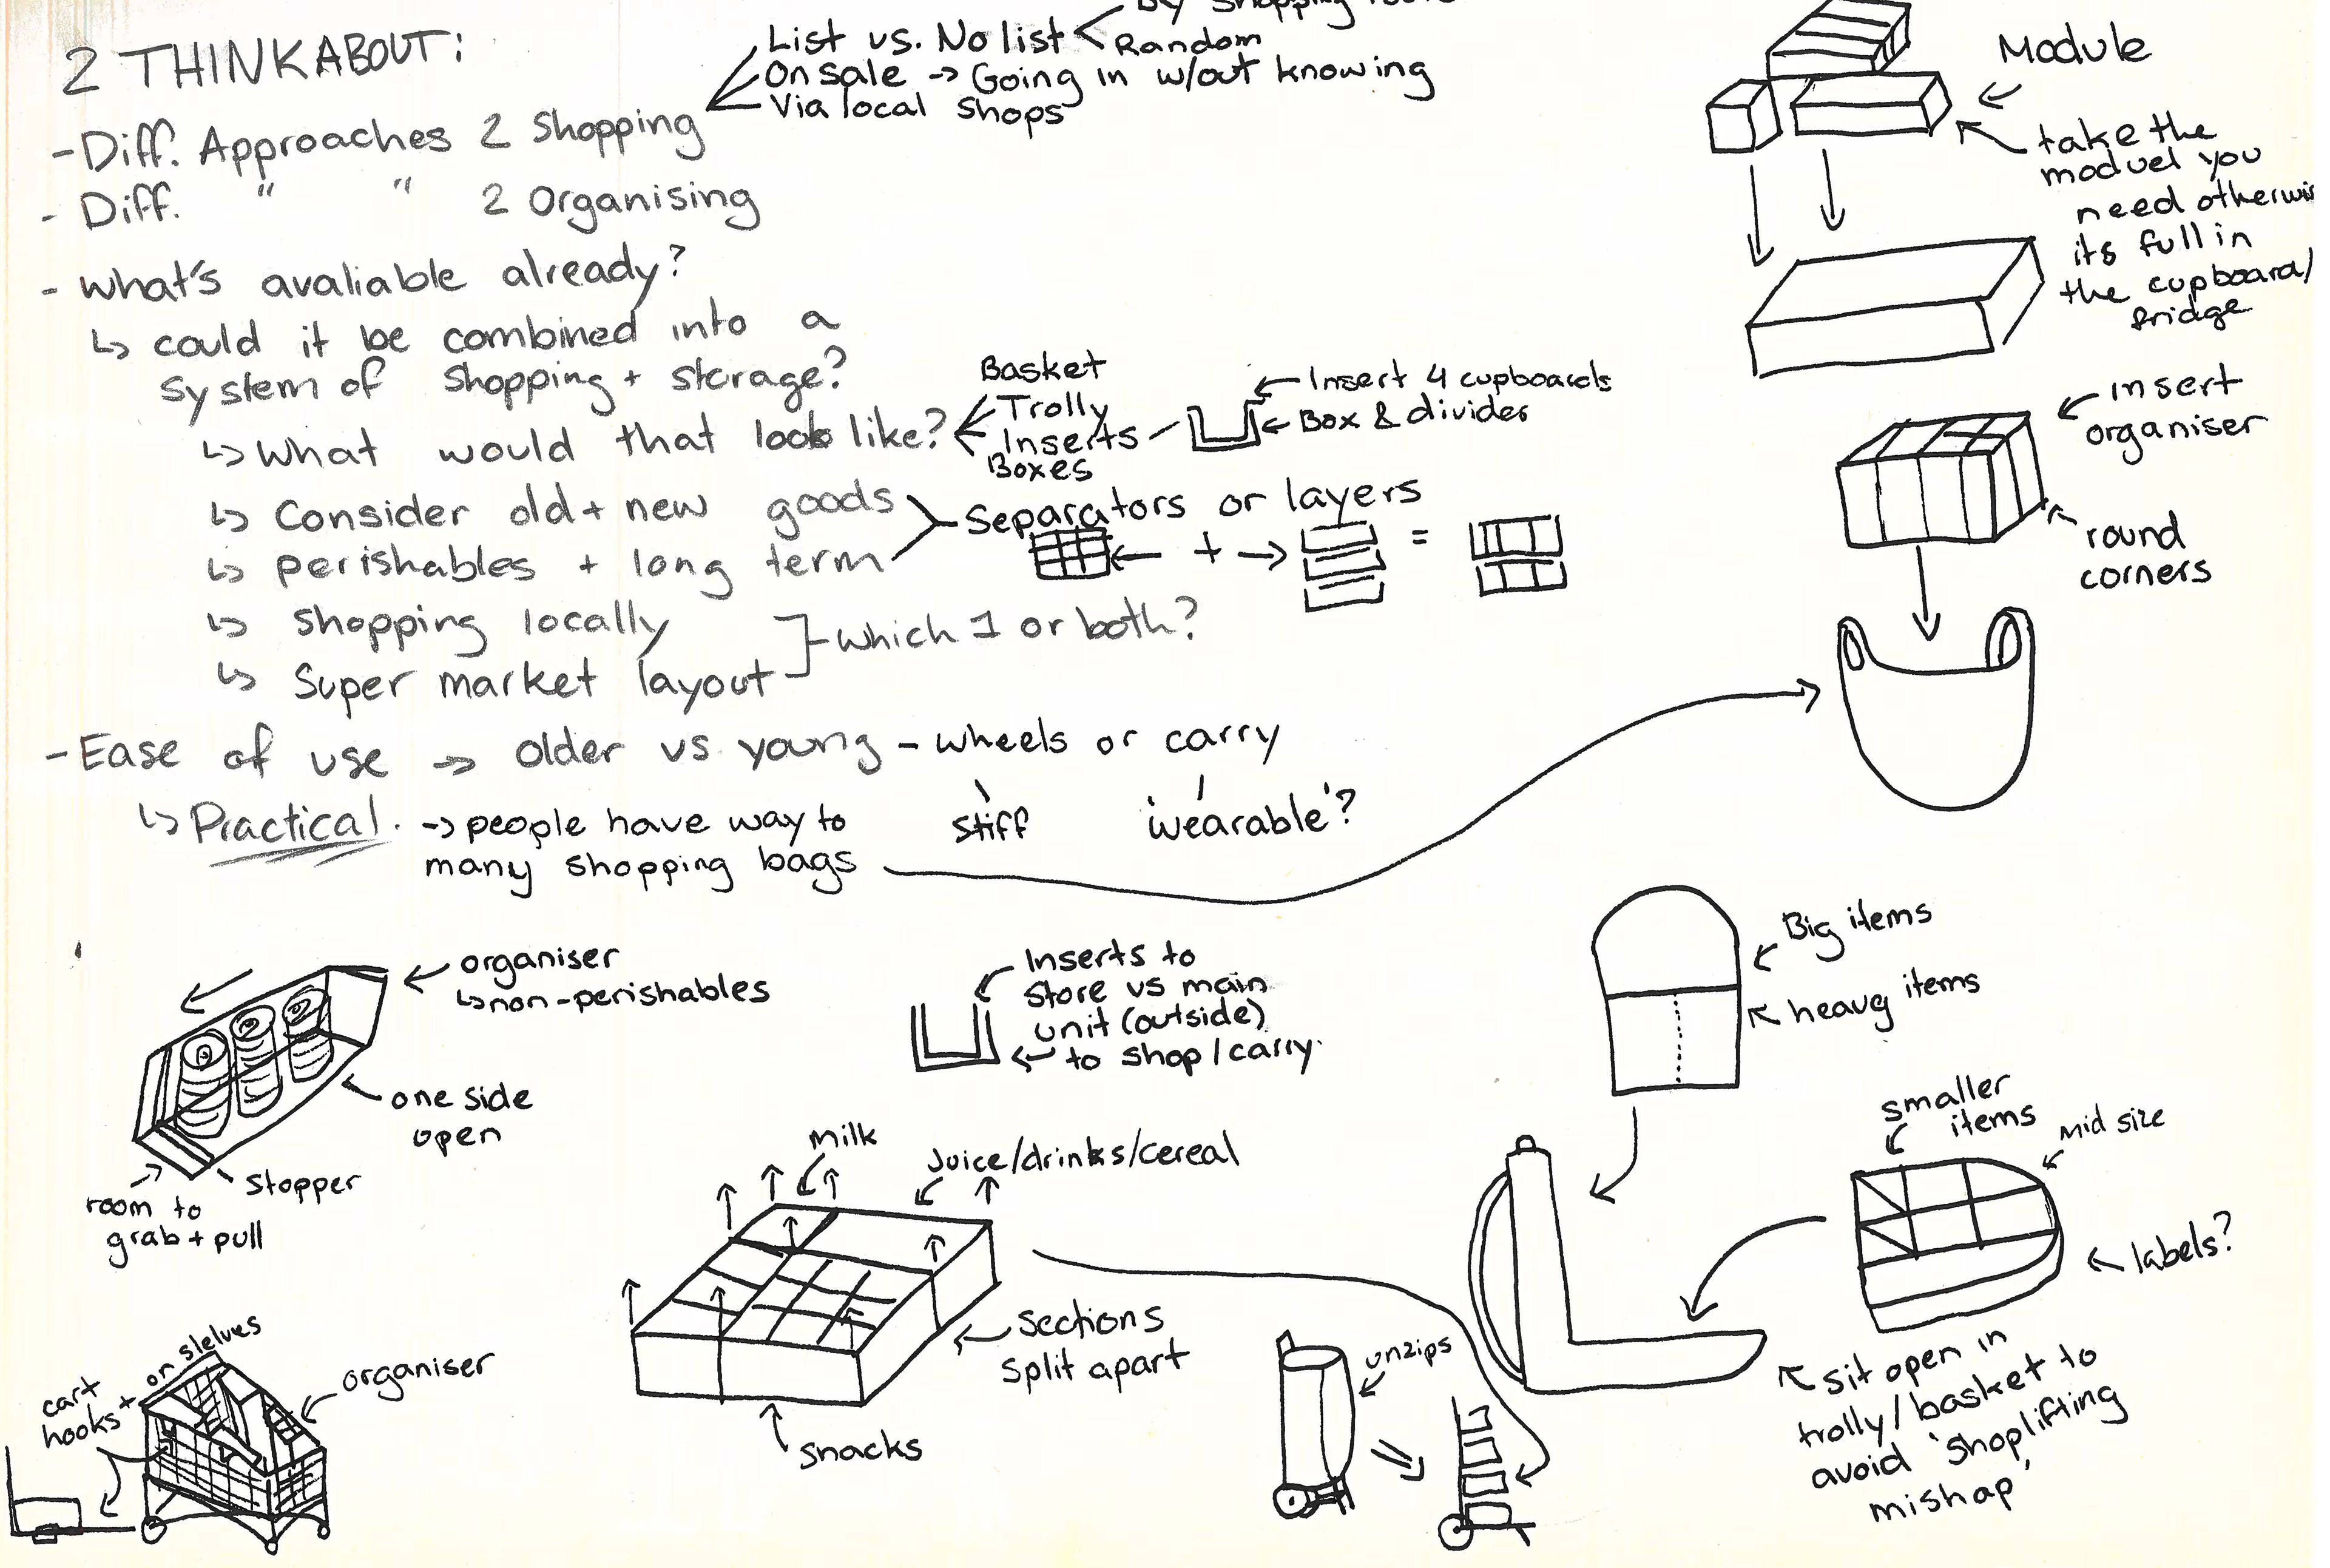 2 THINKABOUT:
List vs. No list
Random
On sale -> Going in w/out knowing
Via local shops
-Diff. Approaches 2 Shopping
- Diff. " " 2 Organising
- What's avaliable already?
↳ could it be combined into a
system of shopping + storage?
↳ What would that look like?
Basket
Trolly
Inserts
Boxes
Insert 4 cupboards
Box & divider
↳ Consider old + new goods
↳ perishables + long term
Separators or layers
+ =
↳ Shopping locally
↳ Super market layout
which 1 or both?
- Ease of use -> older vs. young - wheels or carry
stiff
'wearable'?
↳ Practical. -> people have way to
many shopping bags
Module
take the
moduel you
need otherwi
its full in
the cupboard/
fridge
insert
organiser
round
corners
organiser
↳non-perishables
one side
open
stopper
room to
grab + pull
Inserts to
store vs main
unit (outside)
to shop/carry.
Big items
heavy items
smaller
items
mid size
labels?
sit open in
trolly/basket to
avoid 'shoplifting
mishap'
Milk
Juice/drinks/cereal
Sections
split apart
snacks
unzips
cart
hooks + or slelves
organiser